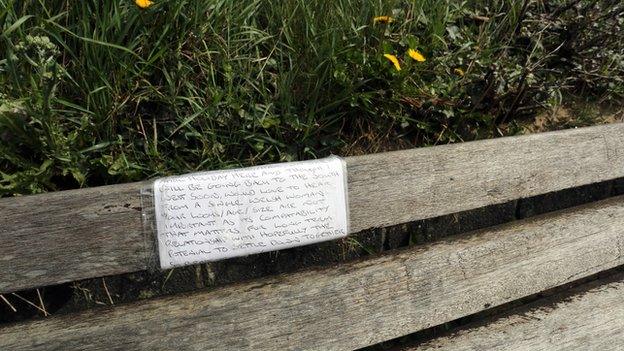 DAY HERE AND THOUGH
WILL BE GOING BACK TO THE SOUTH
WEST SOON, WOULD LOVE TO HEAR
FROM A SINGLE WELSH WOMAN
YOUR LOOKS/AGE/SIZE ARE NOT
IMPORTANT AS ITS COMPATABILITY
THAT MATTERS FOR LONG TERM
RELATIONSHIP WITH HOPEFULLY THE
POTENIAL TO SETTLE DOWN TOGETHER